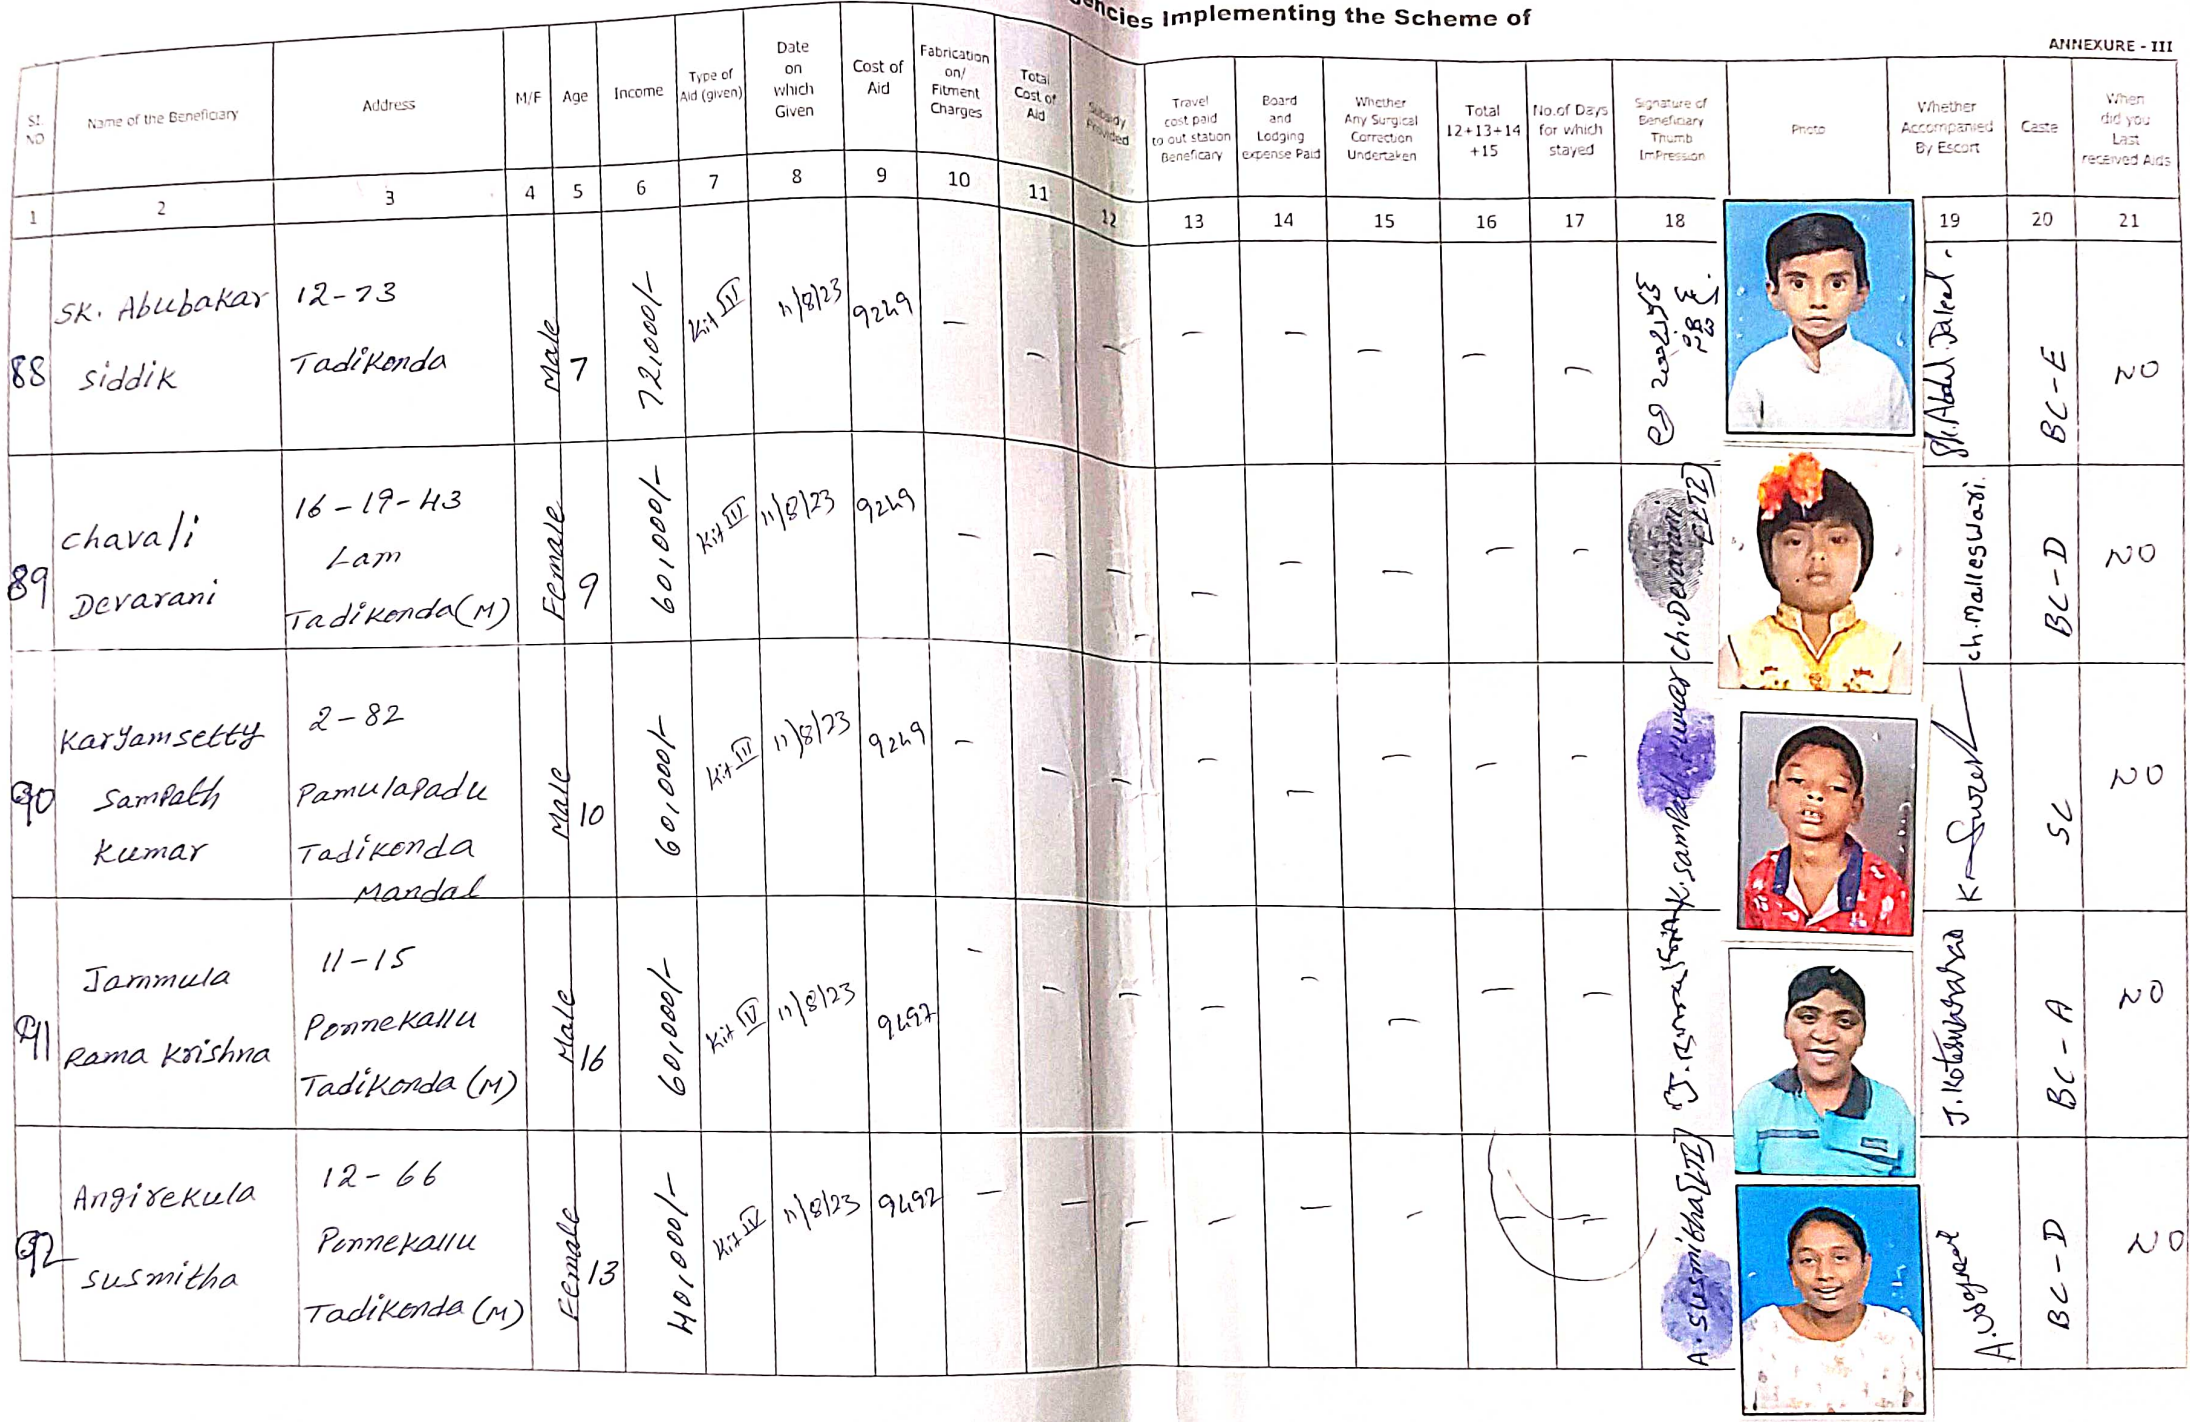 ncies Implementing the Scheme of
ANNEXURE - III
Sl. NO
Name of the Beneficiary
Address
M/F
Age
Income
Type of Aid (given)
Date on which Given
Cost of Aid
Fabrication on/ Fitment Charges
Total Cost of Aid
Subsidy Provided
Travel cost paid to out station Beneficary
Board and Lodging expense Paid
Whether Any Surgical Correction Undertaken
Total 12+13+14 +15
No.of Days for which stayed
Signature of Beneficiary Thumb ImPression
Photo
Whether Accompanied By Escort
Caste
When did you Last received Aids
1 2 3 4 5 6 7 8 9 10 11 12 13 14 15 16 17 18 19 20 21
88
SK. Abubakar
Siddik
12-73
Tadikonda
Male
7
72,000/-
Kit III
11/8/23
9249
– – – – – – – –
Sk. Abdul Jaleel.
BC-E
NO
89
Chavali
Devarani
16-19-43
Lam
Tadikonda (M)
Female
9
60,000/-
Kit III
11/8/23
9249
– – – – – – – –
Ch. Devarani [LTI]
ch. Malleswari.
BC-D
NO
90
Karyamsetty
Sampath
Kumar
2-82
Pamulapadu
Tadikonda
Mandal
Male
10
60,000/-
Kit III
11/8/23
9249
– – – – – – – –
K. Sampath Kumar
K Suresh
SC
NO
91
Jammula
Rama Krishna
11-15
Ponnekallu
Tadikonda (M)
Male
16
60,000/-
Kit IV
11/8/23
9497
– – – – – – – –
J. Koteswararao
BC-A
NO
92
Angirekula
Susmitha
12-66
Ponnekallu
Tadikonda (M)
Female
13
40,000/-
Kit IV
11/8/23
9497
– – – – – – – –
A. Susmitha [LTI]
BC-D
NO